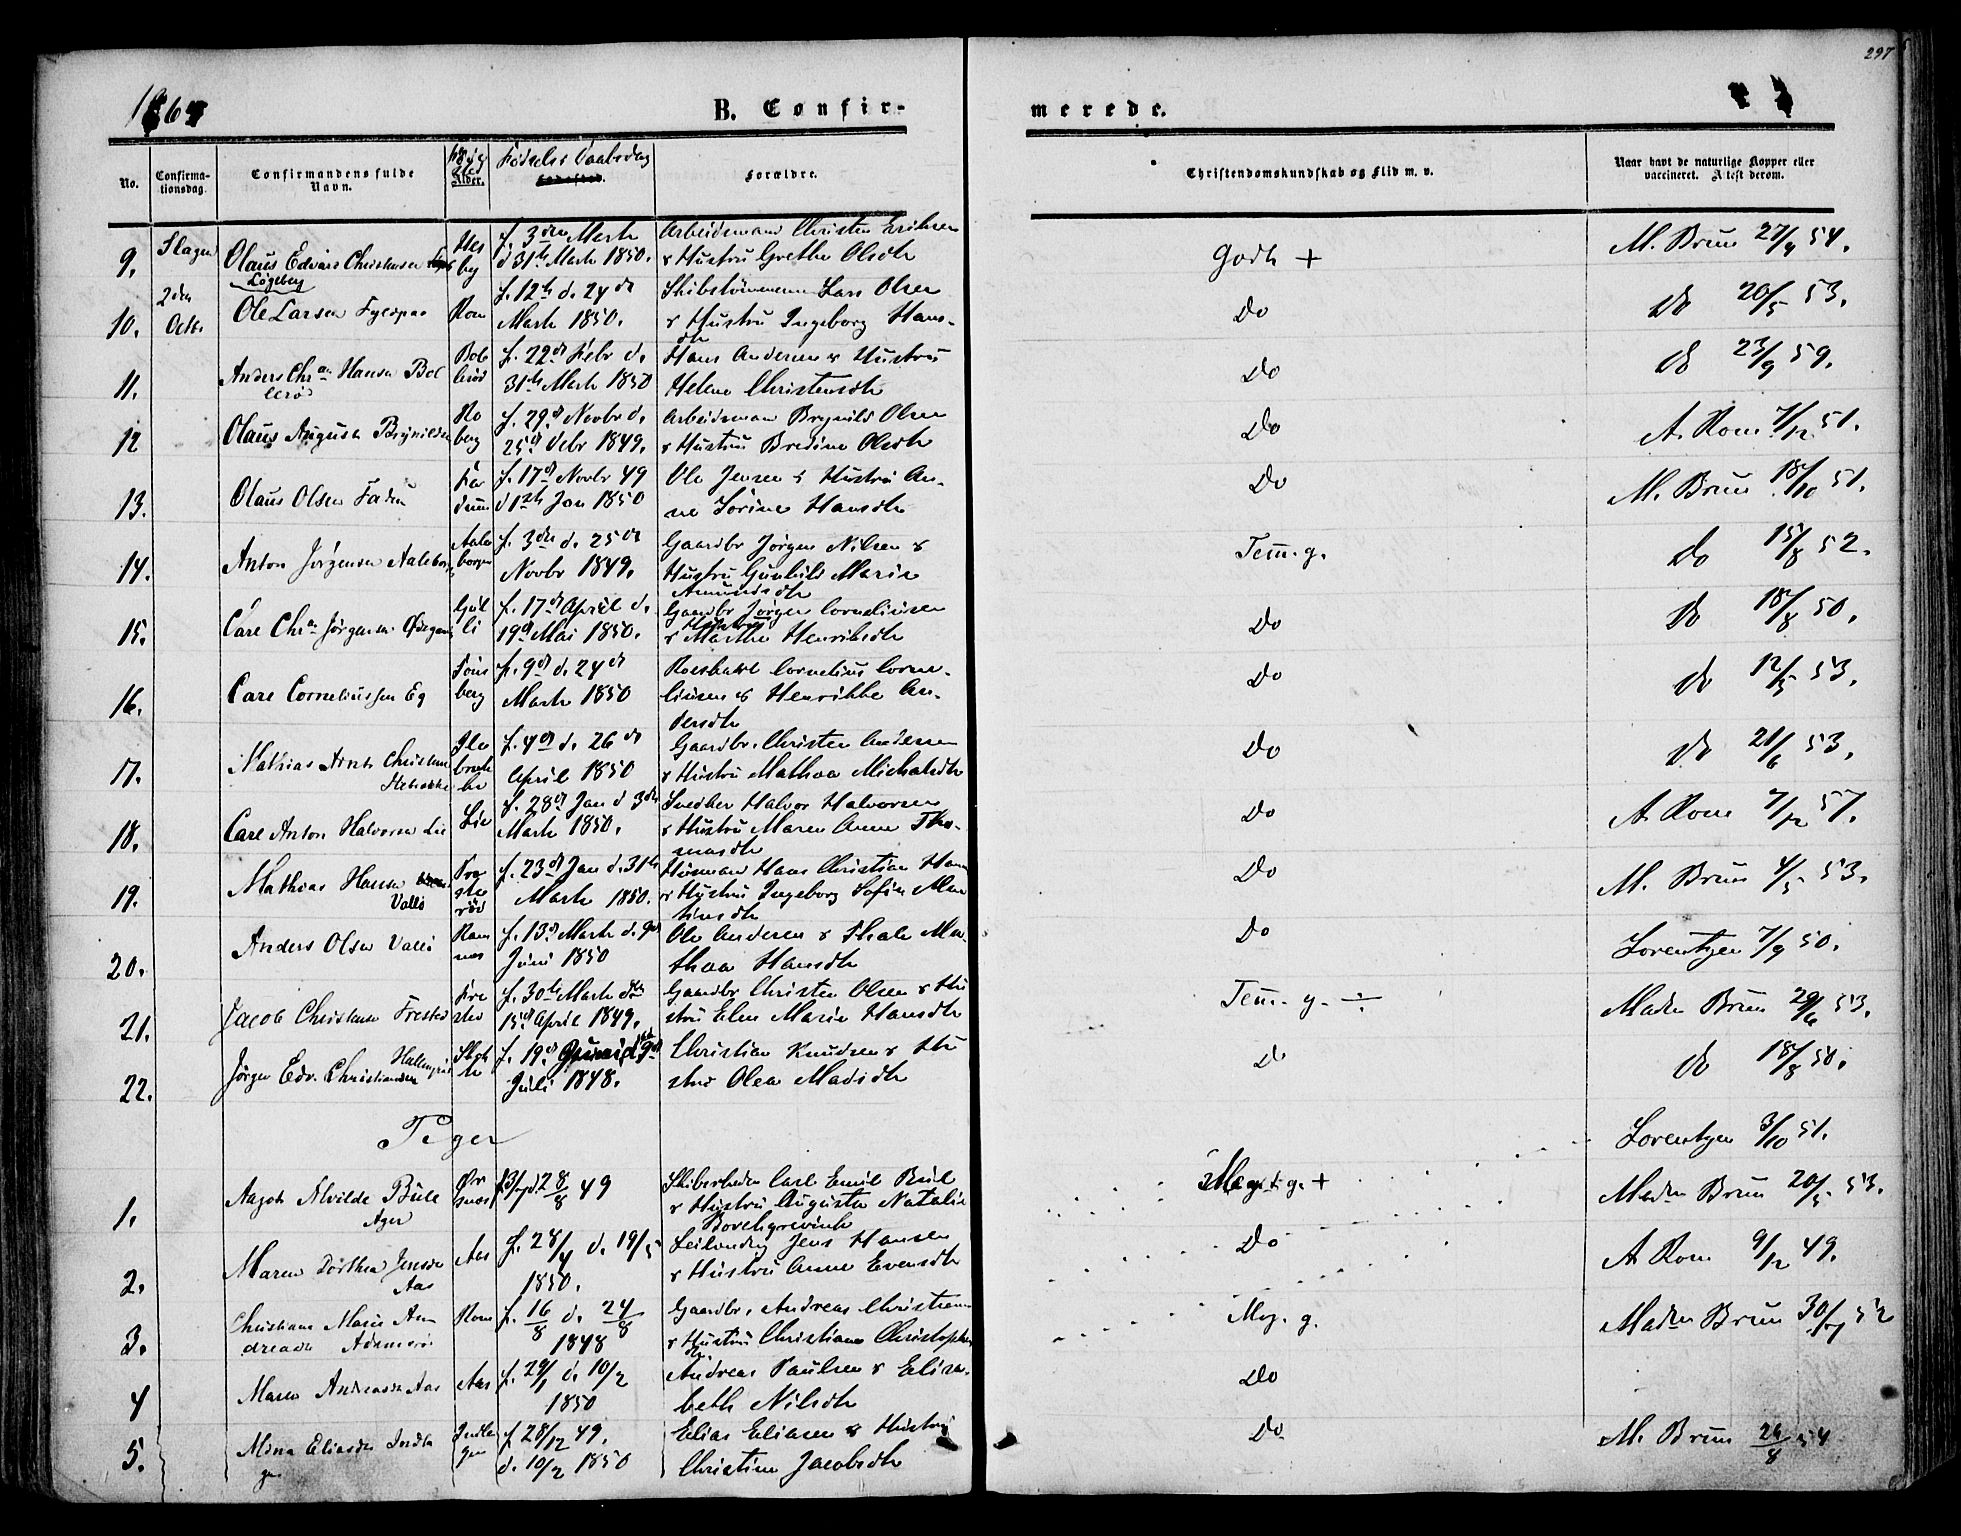 297
1864
B. Confir-
merede.
No.
Confirma-
tionsdag.
Confirmandens fulde
Navn.
Alder.
Fødsels Daabsdag
Fødested.
Forældre.
Christendomskundskab og Flid m. v.
Naar havt de naturlige Kopper eller
vaccineret. Attest derom.
9. Slagen Olaus Edvard Christensen
Løgeberg
Hes
by
f. 3den Marts
d 31te Marts 1850.
Arbeidsmand Christen Eriksen
& Hustru Grethe Olsdtr
Godt +
M. Bruun 27/4 54.
10. 2den
Octbr
Ole Larsen
Rom
f. 12te d. 24de
Marts 1850.
Skibstømmermand Lars Olsen
& Hustru Ingeborg Hans-
dtr
Do
do 20/5 53.
11. Anders Chr.an Hansen Bol
lerød
Bol
lerød
f. 22de Febr d.
31te Marts 1850
Hans Andersen & Hustru
Helene Christensdtr
Do
do 23/9 59.
12 Olaus August Brynildsen
Ro
berg
f. 29de Novbr d.
25de Debr 1849.
Arbeidsmand Brynild Olsen
& Hustru Bredine Olsdtr
Do
A. Rom 7/12 51.
13. Olaus Olsen Fadum
Fa
dum
f. 17de Novbr 49
d 1ste Jan 1850
Ole Jensen & Hustru An-
ne Sørine Hansdtr
Do
M. Bruun 18/10 51.
14. Anton Jørgensen
f. 3die d. 25de
Novbr 1849.
Gaardbr Jørgen Nilsen &
Hustru Gunhild Marie
Amundsdtr
Tem. g.
do 15/8 52.
15. Carl Chr.an Jørgensen
Gul
li
f. 17de April d.
19de Mai 1850.
Gaardbr Jørgen Corneliusen
& Hustru Marthe Henriksdtr
Do
do 18/8 50.
16. Carl Corneliussen Eg
Tøns
berg
f. 9de d. 24de
Marts 1850
Cornelius Corne-
liusen & Henrikke An-
dersdtr
Do
do 12/5 53.
17. Mathias Arnt Christensen
f. 4de d. 26de
April 1850
Gaardbr. Christen Andersen
& Hustru Mathea Michelsdtr
Do
do 21/6 53.
18. Carl Anton Halvorsen Lie
Lie
f. 28de Jan d 3die
Marts 1850.
Halvor Halvorsen
& Hustru Maren Anne Tho-
masdtr
Do
A. Rom 7/12 57.
19. Mathias Hansen
Vallø
Præ
ste
rød
f. 23de Jan d. 31te
Marts 1850.
Huusmand Hans Christian Hans
& Hustru Ingeborg Sofie
Do
M. Bruun 4/5 53.
20. Anders Olsen Vallø
Ram
nes
f. 13de Marts d. 9de
Juni 1850
Ole Andersen & Thale Ma-
thea Hansdtr
Do
Lorentzen 7/9 50.
21. Jacob Christensen Fresteø
Fre
steø
f. 30te Marts
15de April 1849.
Gaardbr Christen Olsen & Hu
stru Elen Marie Hansdtr
Tem. g. ÷
Madm Bruun 29/6 53.
22. Jørgen Edv. Christiansen
f. 19de Juni d. 9de
Juli 1848.
Christian Knudsen & Hu
stru Olea Madsdtr
Do
do 18/8 50.
Piger
Lorentzen 3/10 51.
1. Aagot Alvilde Bull
Ager
d. 28/8 49
Skibsrheder Carl Emil Bull
& Hustru Augusta Natalie
Borchgrevink
Meget g. +
Madm Bruun 20/5 53.
2. Maren Dorthea Jensdtr
Aas
Aas
f. 28/4 d. 19/5
1850.
Leilænding Jens Hansen
& Hustru Anne Evensdtr
Do
A Rom 9/12 49.
3. Christiane Marie An
dreasdtr
Rom
f. 16/8 d. 24/8
1848
Gaardbr. Andreas Christians
& Hustru Christiane Christophers
dtr
Meg. g.
Madm Bruun 52
4 Maren Andreasdtr Aas
Aas
f. 29/1 d. 10/2
1850
Andreas Paulsen & Elisa-
beth Nilsdtr
Do
5. Mina Eliasdtr Indla
gen
Indla
gen
f 28/12 49.
d. 10/2 1850
Elias Eliasen & Hustru
Christine Jacobsdtr
Do
M. Bruun 54